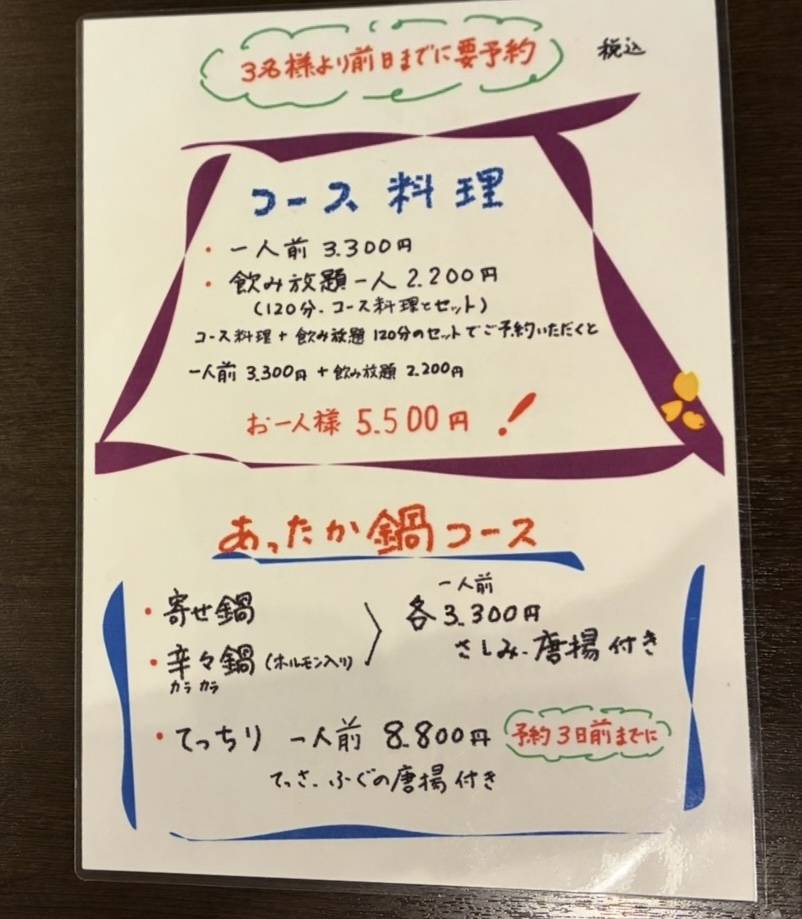 3名様より前日までに要予約
税込
コース料理
・一人前 3.300円
・飲み放題一人 2.200円
(120分、コース料理とセット)
コース料理+飲み放題120分のセットでご予約いただくと
一人前 3.300円+飲み放題 2.200円
お一人様 5.500円!
あったか鍋コース
・寄せ鍋
・辛々鍋(ホルモン入り)
カラカラ
一人前
各3.300円
さしみ、唐揚付き
・てっちり 一人前 8.800円 予約3日前までに
てっさ、ふぐの唐揚付き